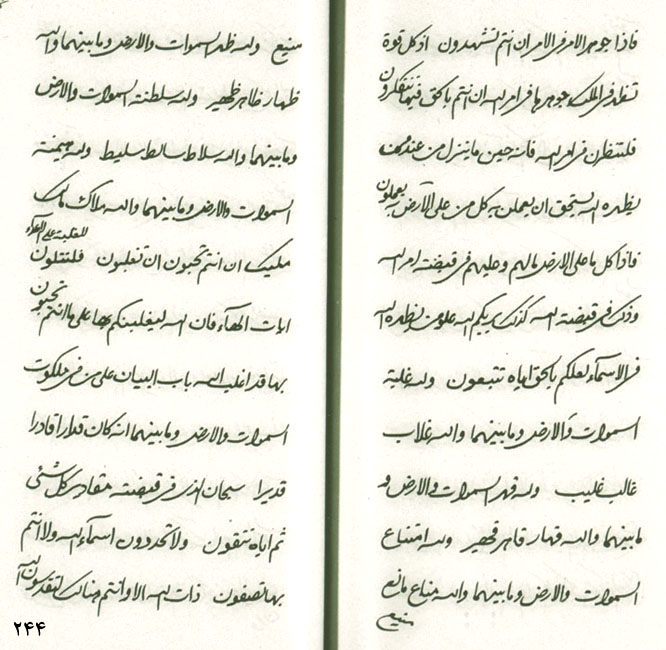 فاذا جوهر الامر فی الامر ان انتم تشهدون اذ کل قوة
تظهر فی الملک جوهرها فی امر الله ان انتم بالحق فیها تتفکرون
فلتنظرن فی امر الله فانه حین ما ینزل من عند من
یظهره الله یستحق ان یعملن به کل من علی الارض به یعملون
فاذا کل ما علی الارض مالهم وعلیهم فی قبضته امر الله
وذلک فی قبضته الله کذلک یریکم الله علو من یظهره الله
فی الاسماء لعلکم بالحق ایاه تتبعون ولله غلبة
السموات والارض وما بینهما والله غلاب
غالب غلیب ولله قهر السموات والارض و
ما بینهما والله قهار قاهر قهیر ولله امتناع
السموات والارض وما بینهما والله مناع مانع
منیع
منیع ولله ظهر السموات والارض وما بینهما والله
ظهار ظاهر ظهیر ولله سلطنة السموات والارض
وما بینهما والله سلاط سالط سلیط ولله
السموات والارض وما بینهما والله ملاک مالک
ملیک ان انتم تحبون ان تغلبون فلتتلون
ایات الهاء فان الله لیغلبنکم بها علی ما انتم تحبون
بها قد اغلب الله باب البیان علی من فی ملکوت
السموات والارض وما بینهما انه کان قدارا قادرا
قدیرا سبحان الذی فی قبضته مقادیر کل شئی
ثم ایاه تتقون ولا تحددون اسماء الله ولا انتم
بها تصفون ذات الله الا وانتم هنالک لتقدسون الله
۲۴۴